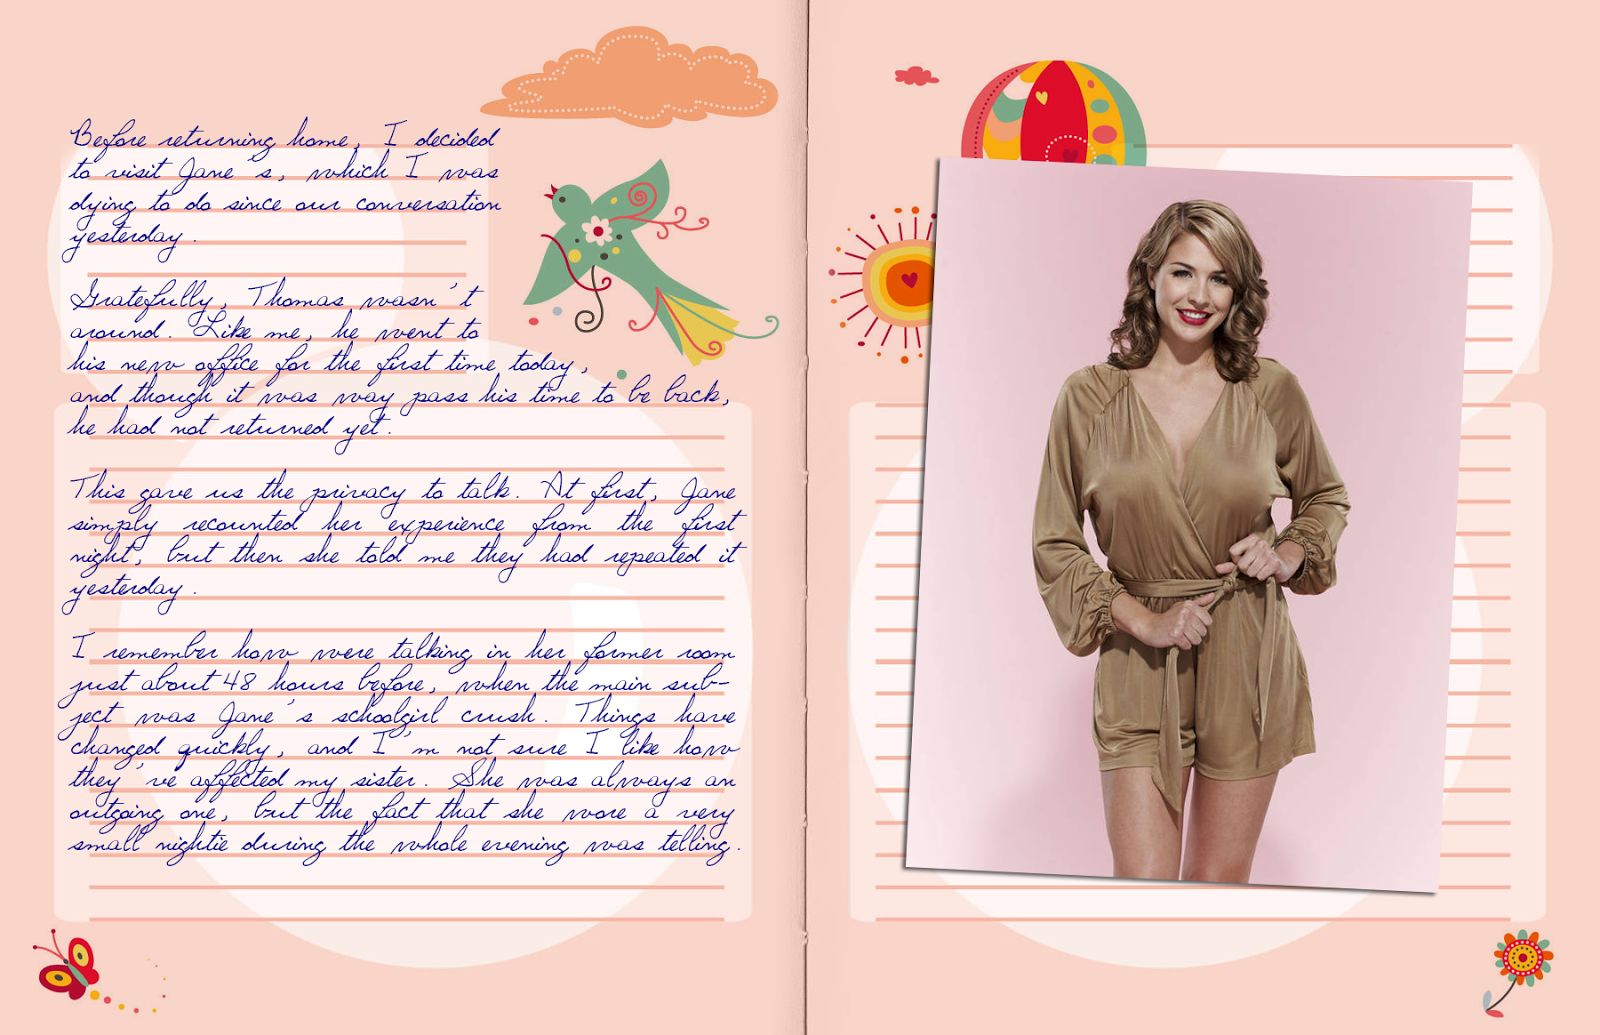 Before returning home, I decided
to visit Jane's, which I was
dying to do since our conversation
yesterday.
Gratefully, Thomas wasn't
around. Like me, he went to
his new office for the first time today,
and though it was way pass his time to be back,
he had not returned yet.
This gave us the privacy to talk. At first, Jane
simply recounted her experience from the first
night, but then she told me they had repeated it
yesterday.
I remember how were talking in her former room
just about 48 hours before, when the main sub-
ject was Jane's schoolgirl crush. Things have
changed quickly, and I'm not sure I like how
they've affected my sister. She was always an
outgoing one, but the fact that she wore a very
small nightie during the whole evening was telling.